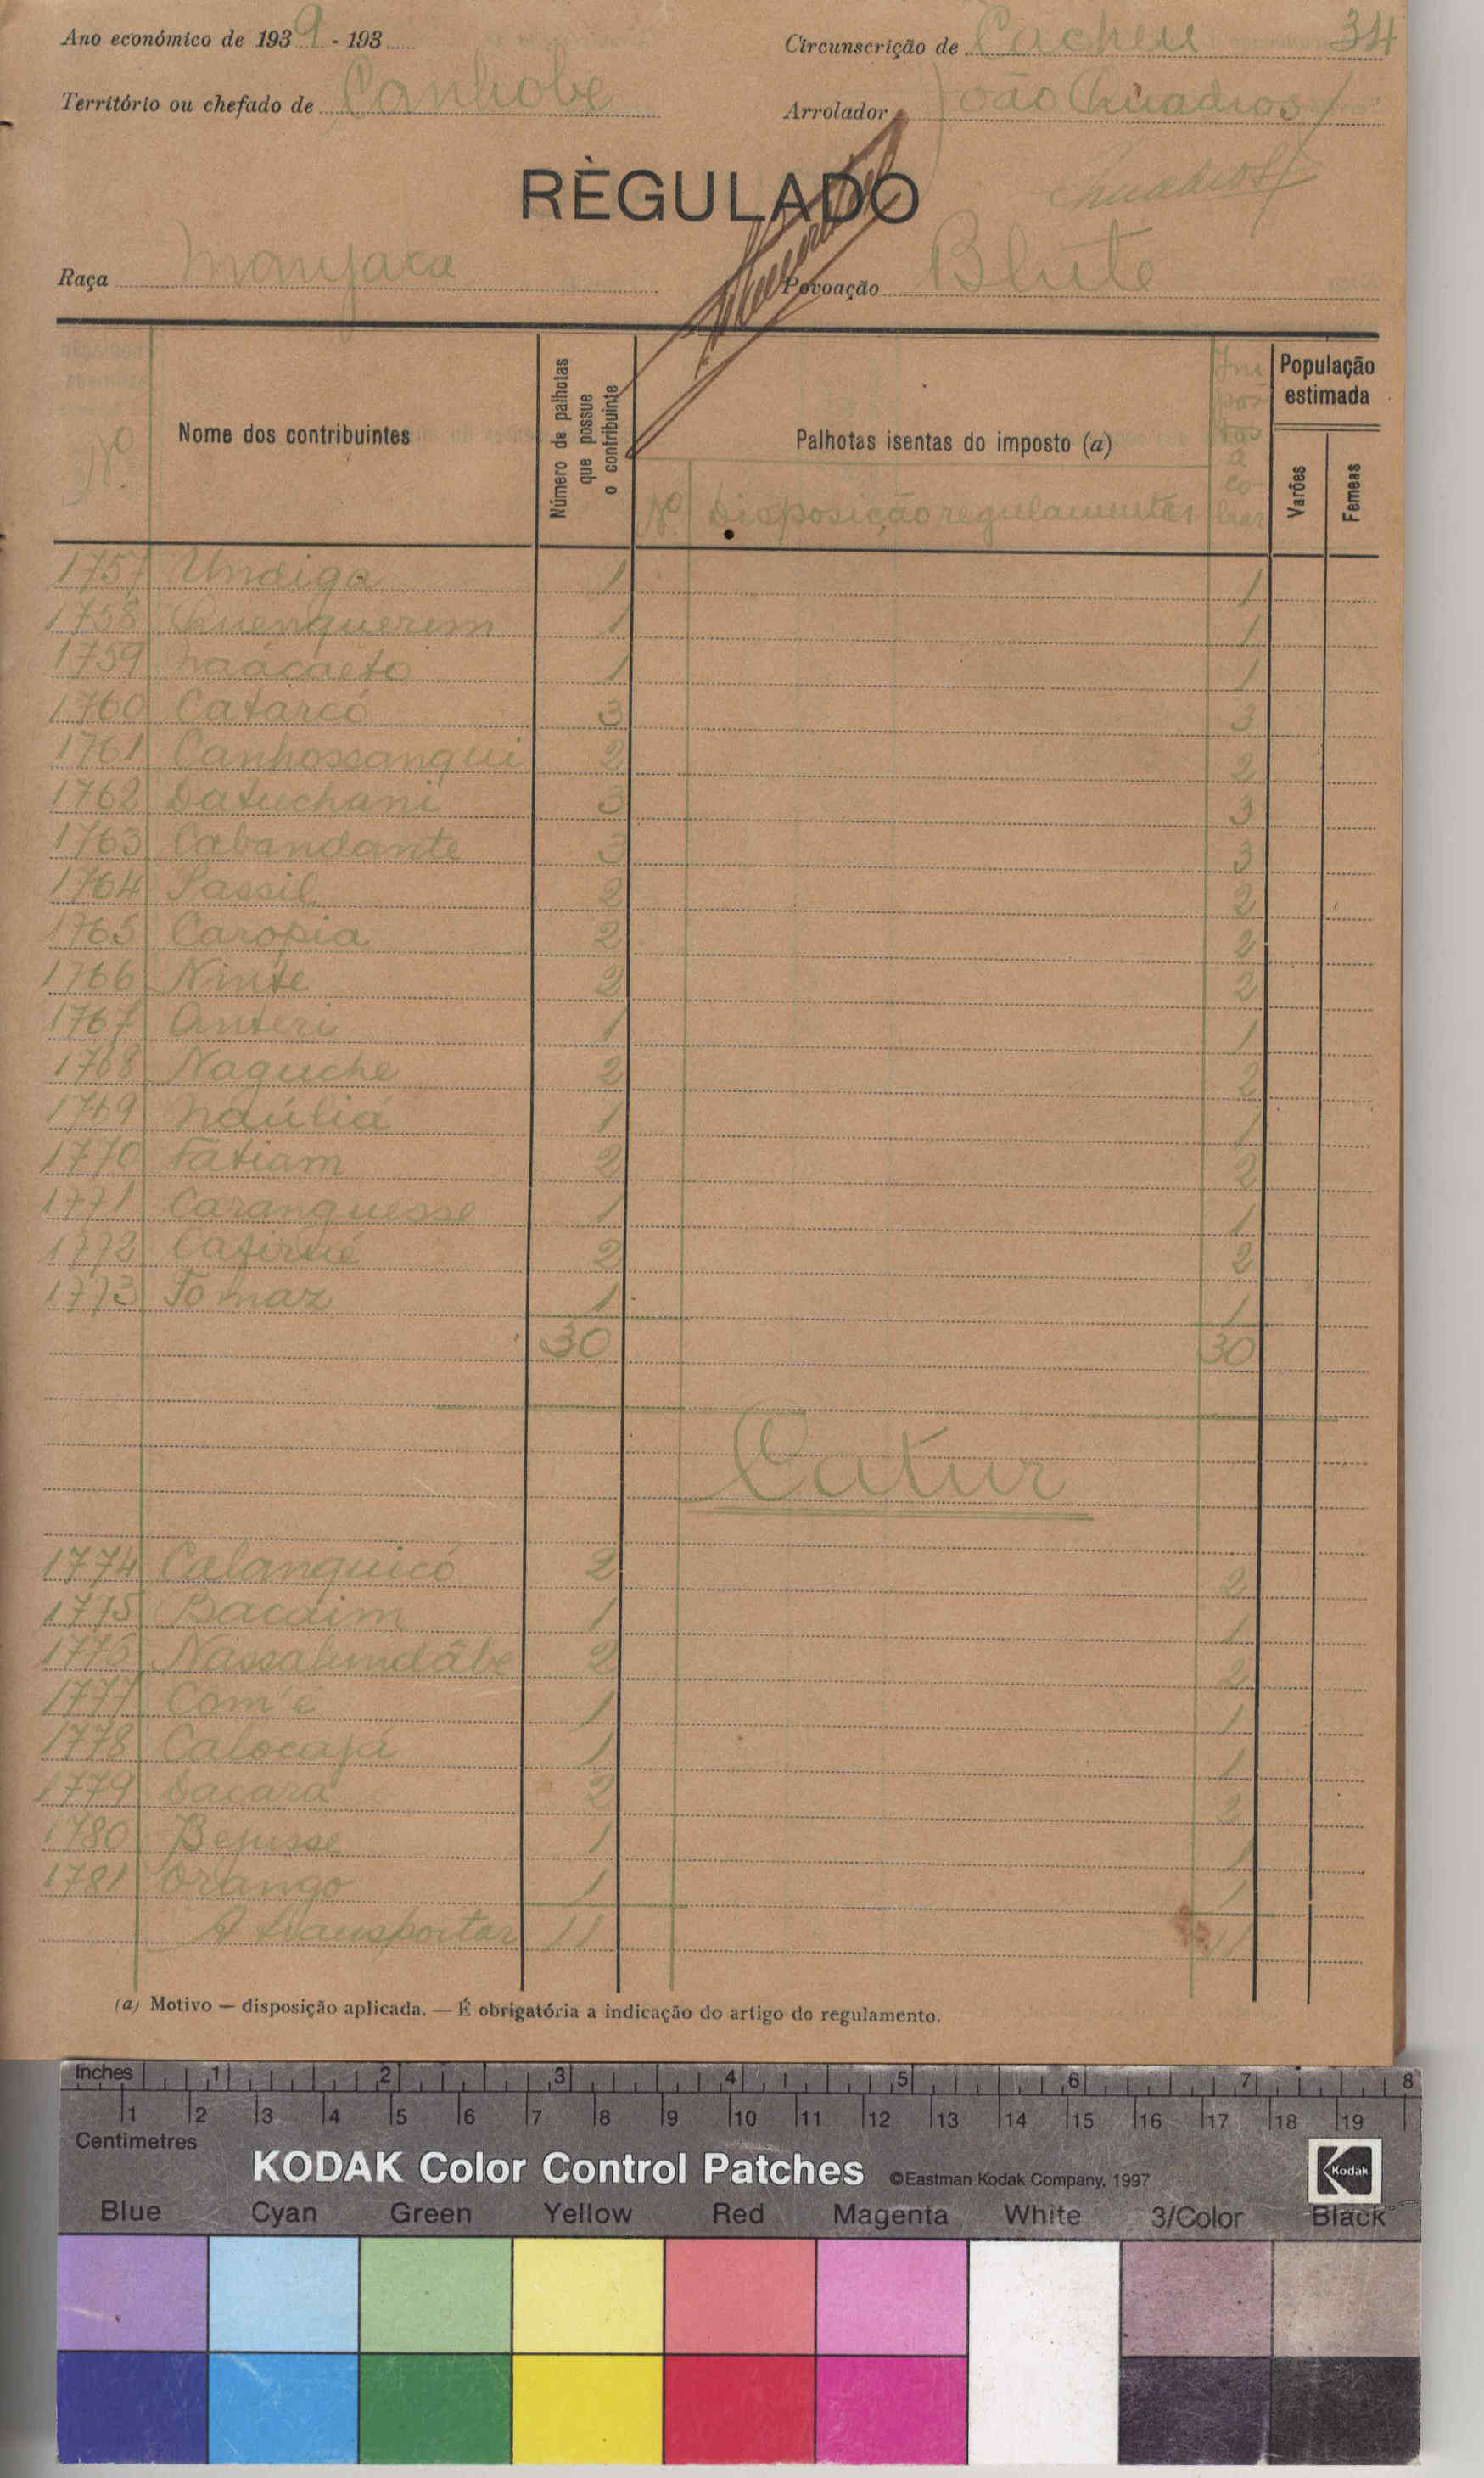 Ano económico de 1939 - 193
Circunscrição de Cacheu 34
Território ou chefado de Canhobe
Arrolador João Quadros
RÈGULADO
Quadros
Raça Manjaca
Povoação Blute
Nº
Nome dos contribuintes
Número de palhotas que possue o contribuinte
Palhotas isentas do imposto (a)
Nº Disposição regulamentar
Impostos a cobrar
População estimada
Varões
Femeas
1757 Undiga 1 1
1758 Quenquerim 1 1
1759 Naácaeto 1 1
1760 Catarcó 3 3
1761 Canhossangui 2 2
1762 Datuchani 3 3
1763 Cabandante 3 3
1764 Passil 2 2
1765 Caropia 2 2
1766 Ninte 2 2
1767 Anteri 1 1
1768 Naguche 2 2
1769 Naúliá 1 1
1770 Fatiam 2 2
1771 Caranguesse 1 1
1772 2 2
1773 Tomaz 1 1
30 30
Catur
1774 Calanguicó 2 2
1775 Bacaim 1 1
1776 Nassalundâbe 2 2
1777 Com'é 1 1
1778 Calocajá 1 1
1779 Sacara 2 2
1780 Bejusse 1 1
1781 Orango 1 1
A transportar 11 11
(a) Motivo — disposição aplicada. — É obrigatória a indicação do artigo do regulamento.
Inches 1 2 3 4 5 6 7 8
1 2 3 4 5 6 7 8 9 10 11 12 13 14 15 16 17 18 19
Centimetres
KODAK Color Control Patches ©Eastman Kodak Company, 1997 Kodak
Blue Cyan Green Yellow Red Magenta White 3/Color Black